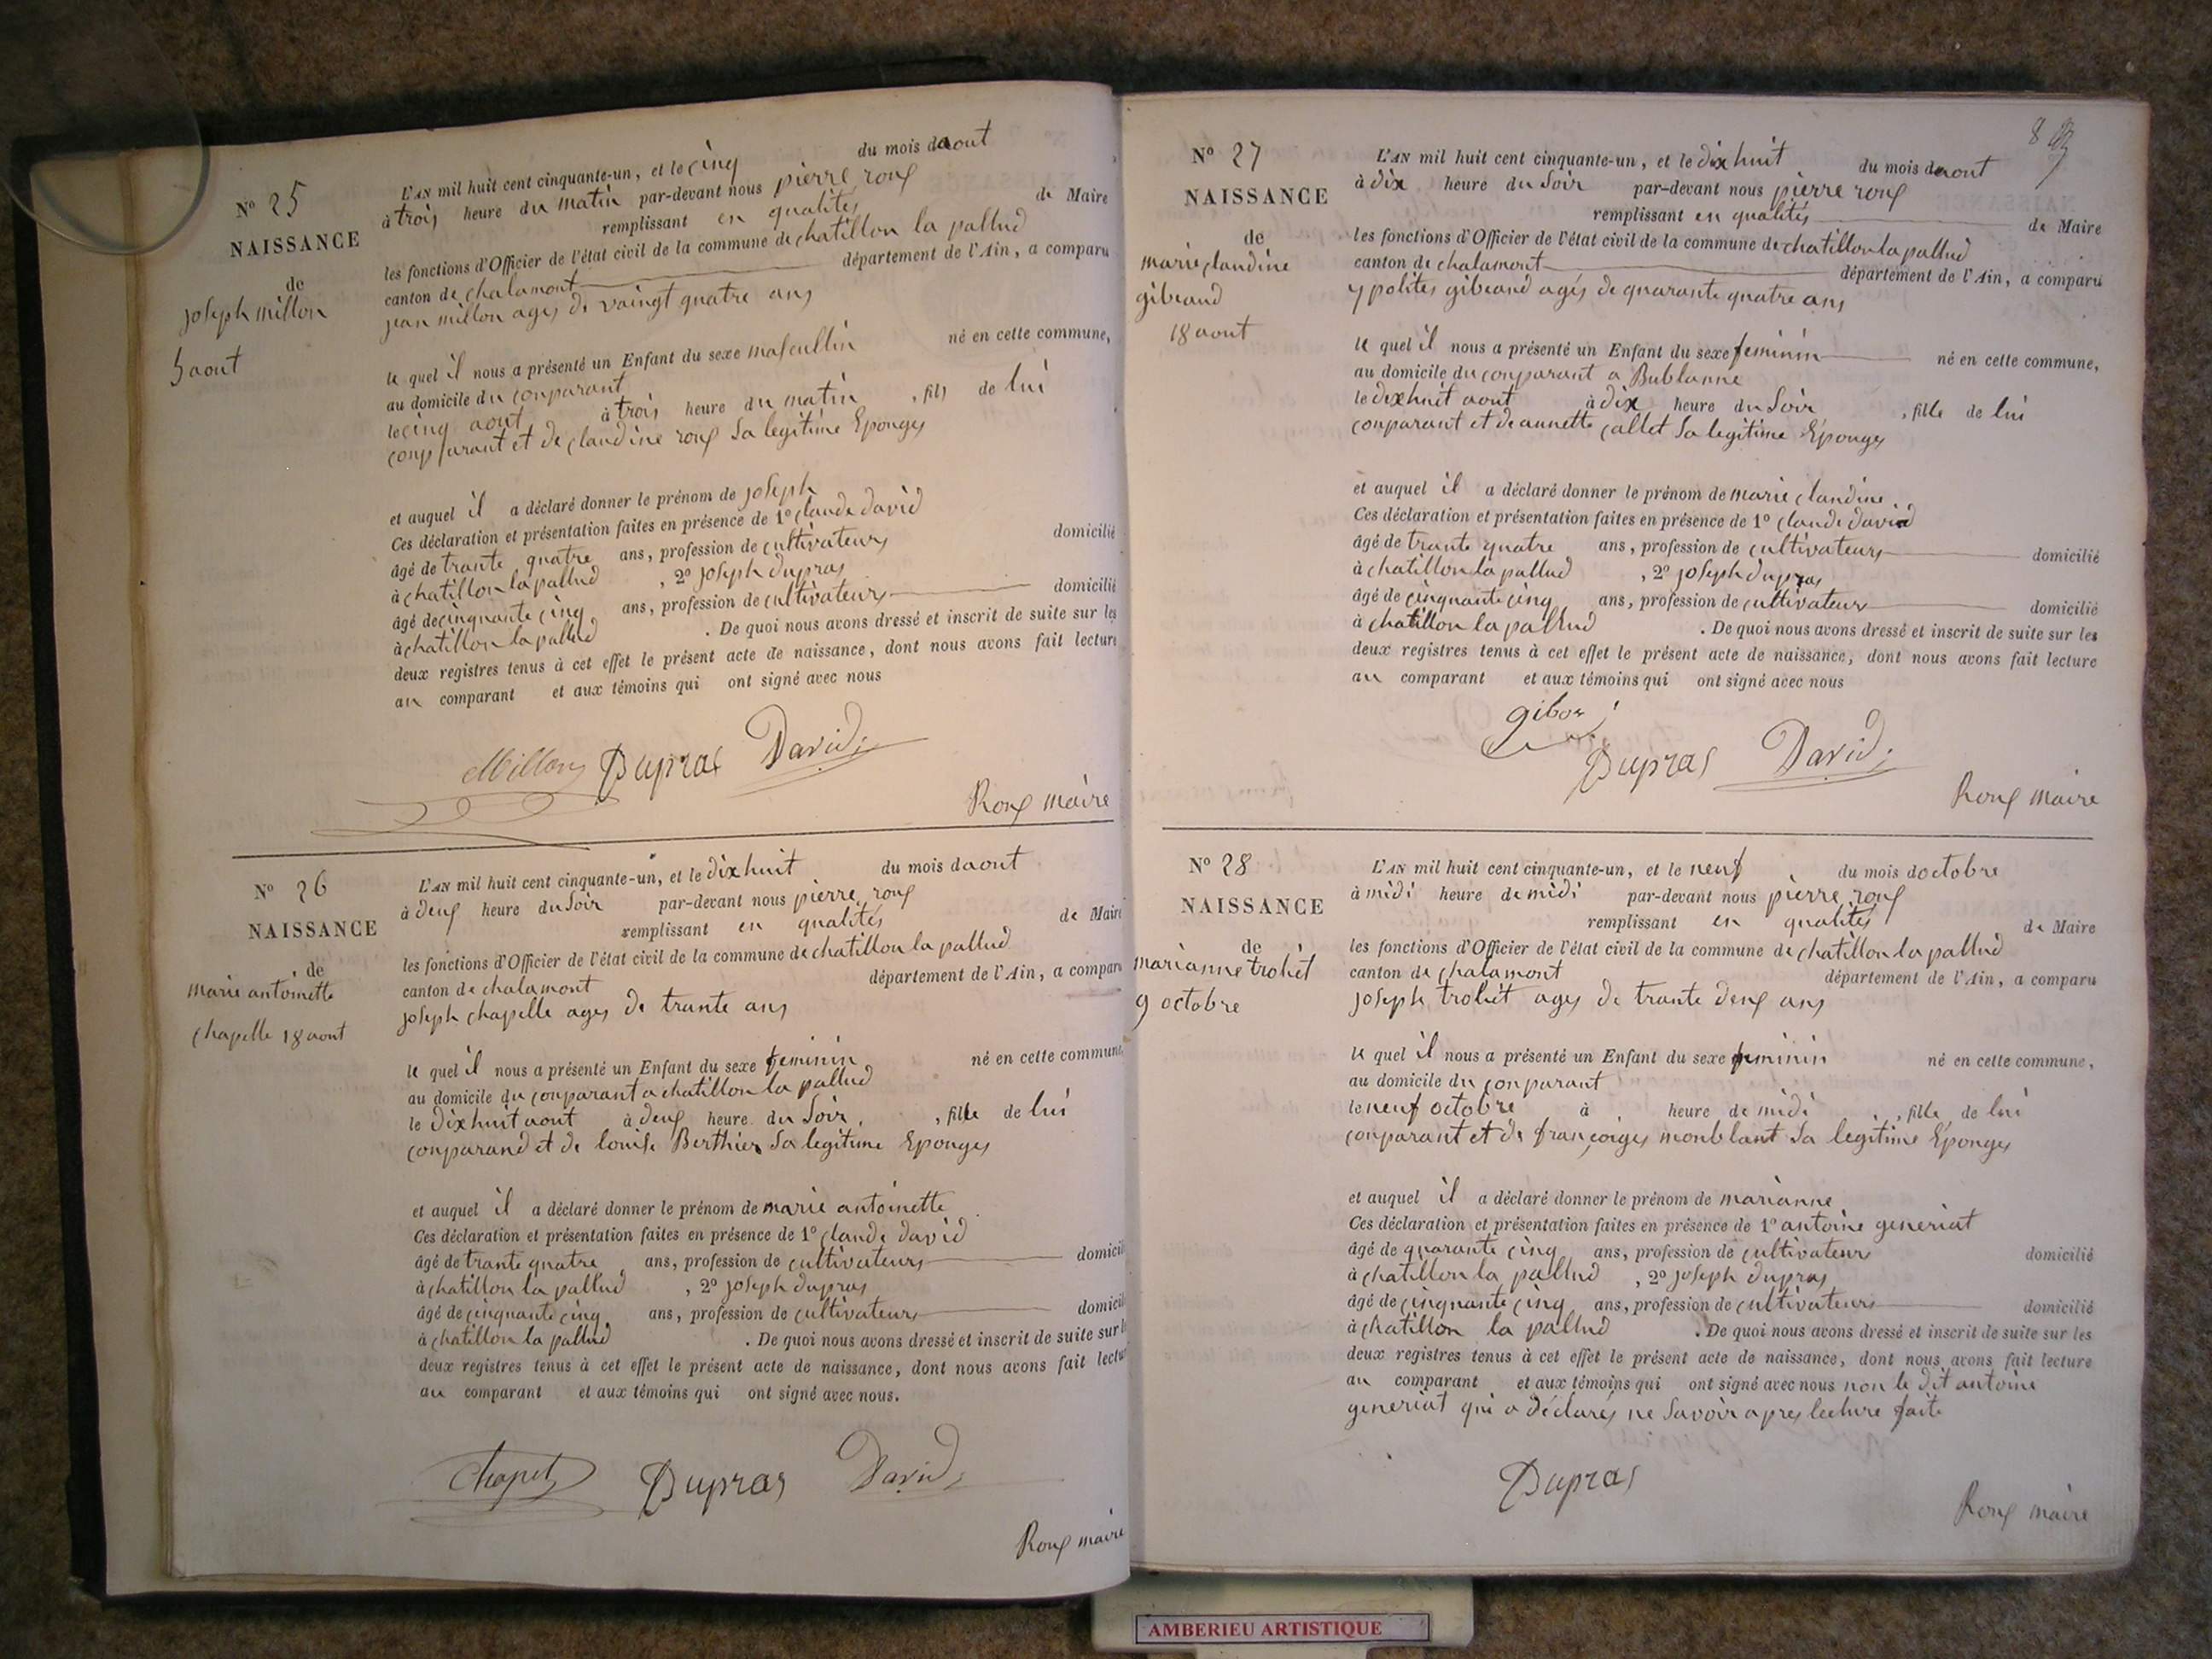 N° 25
NAISSANCE
de
joseph millon
5 aout
L'AN mil huit cent cinquante-un, et le cinq du mois daout
à trois heure du matin par-devant nous pierre roux
remplissant en qualités de Maire
les fonctions d'Officier de l'état civil de la commune de chatillon la pallud
canton de chalamont département de l'Ain, a comparu
jean millon ages de vaingt quatre ans
le quel il nous a présenté un Enfant du sexe masculin né en cette commune,
au domicile du conparant
le cinq aout à trois heure du matin , fils de lui
conparant et de claudine roux sa legitime Epouges
et auquel il a déclaré donner le prénom de joseph
Ces déclaration et présentation faites en présence de 1° claude david
âgé de trante quatre ans, profession de cultivateurs domicilié
à chatillon la pallud , 2° joseph dupras
âgé de cinquante cinq ans, profession de cultivateurs domicilié
à chatillon la pallud . De quoi nous avons dressé et inscrit de suite sur les
deux registres tenus à cet effet le présent acte de naissance, dont nous avons fait lecture
au comparant et aux témoins qui ont signé avec nous
Millon Dupras David
Roux maire
N° 26
NAISSANCE
de
marie antoinette
chapelle 18 aout
L'AN mil huit cent cinquante-un, et le dix huit du mois daout
à deux heure du soir par-devant nous pierre roux
remplissant en qualités de Maire
les fonctions d'Officier de l'état civil de la commune de chatillon la pallud
canton de chalamont département de l'Ain, a comparu
joseph chapelle ages de trante ans
le quel il nous a présenté un Enfant du sexe feminin né en cette commune
au domicile du conparant a chatillon la pallud
le dix huit aout à deux heure du soir , fille de lui
conparand et de louise Berthier sa legitime Epouges
et auquel il a déclaré donner le prénom de marie antoinette
Ces déclaration et présentation faites en présence de 1° claude david
âgé de trante quatre ans, profession de cultivateurs domicilié
à chatillon la pallud , 2° joseph dupras
âgé de cinquante cinq ans, profession de cultivateurs domicilié
à chatillon la pallud . De quoi nous avons dressé et inscrit de suite sur les
deux registres tenus à cet effet le présent acte de naissance, dont nous avons fait lecture
au comparant et aux témoins qui ont signé avec nous.
Dupras David
Roux maire
N° 27
NAISSANCE
de
marie claudine
gibeaud
18 aout
L'AN mil huit cent cinquante-un, et le dix huit du mois daout
à dix heure du soir par-devant nous pierre roux
remplissant en qualités de Maire
les fonctions d'Officier de l'état civil de la commune de chatillon la pallud
canton de chalamont département de l'Ain, a comparu
ypolites gibeaud agés de quarante quatre ans
le quel il nous a présenté un Enfant du sexe feminin né en cette commune,
au domicile du conparant a Bublanne
le dix huit aout à dix heure du soir , fille de lui
conparant et de annette callet sa legitime Epouges
et auquel il a déclaré donner le prénom de marie claudine
Ces déclaration et présentation faites en présence de 1° claude david
âgé de trante quatre ans, profession de cultivateurs domicilié
à chatillon la pallud , 2° joseph dupras
âgé de cinquante cinq ans, profession de cultivateurs domicilié
à chatillon la pallud . De quoi nous avons dressé et inscrit de suite sur les
deux registres tenus à cet effet le présent acte de naissance, dont nous avons fait lecture
au comparant et aux témoins qui ont signé avec nous
Dupras David
Roux maire
N° 28
NAISSANCE
de
marianne trohet
9 octobre
L'AN mil huit cent cinquante-un, et le neuf du mois doctobre
à midi heure de midi par-devant nous pierre roux
remplissant en qualités de Maire
les fonctions d'Officier de l'état civil de la commune de chatillon la pallud
canton de chalamont département de l'Ain, a comparu
joseph trohet ages de trante deux ans
le quel il nous a présenté un Enfant du sexe feminin né en cette commune,
au domicile du conparant
le neuf octobre à heure de midi , fille de lui
conparant et de françoiges monblant sa legitime Epouges
et auquel il a déclaré donner le prénom de marianne
Ces déclaration et présentation faites en présence de 1° antoine generiat
âgé de quarante cinq ans, profession de cultivateur domicilié
à chatillon la pallud , 2° joseph dupras
âgé de cinquante cinq ans, profession de cultivateurs domicilié
à chatillon la pallud . De quoi nous avons dressé et inscrit de suite sur les
deux registres tenus à cet effet le présent acte de naissance, dont nous avons fait lecture
au comparant et aux témoins qui ont signé avec nous non le dit antoine
generiat qui a déclarés ne savoir apres lecture faite
Dupras
Roux maire
AMBERIEU ARTISTIQUE